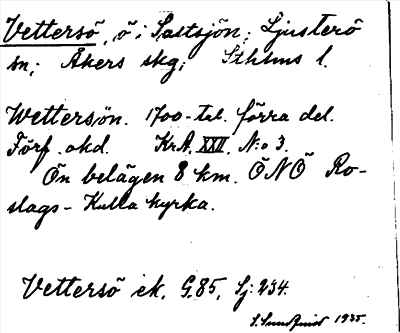 Vettersö, ö i Saltsjön; Ljusterö
sn; Åkers skg; Sthlms l.
Wettersön. 1700-tal. förra del.
Förf. okd. KrA, XXII, N:o 3.
Ön belägen 8 km. ÖNÖ Ro-
slags-Kulla kyrka.
Vettersö ek. G.85, Sj. 234.
1935.